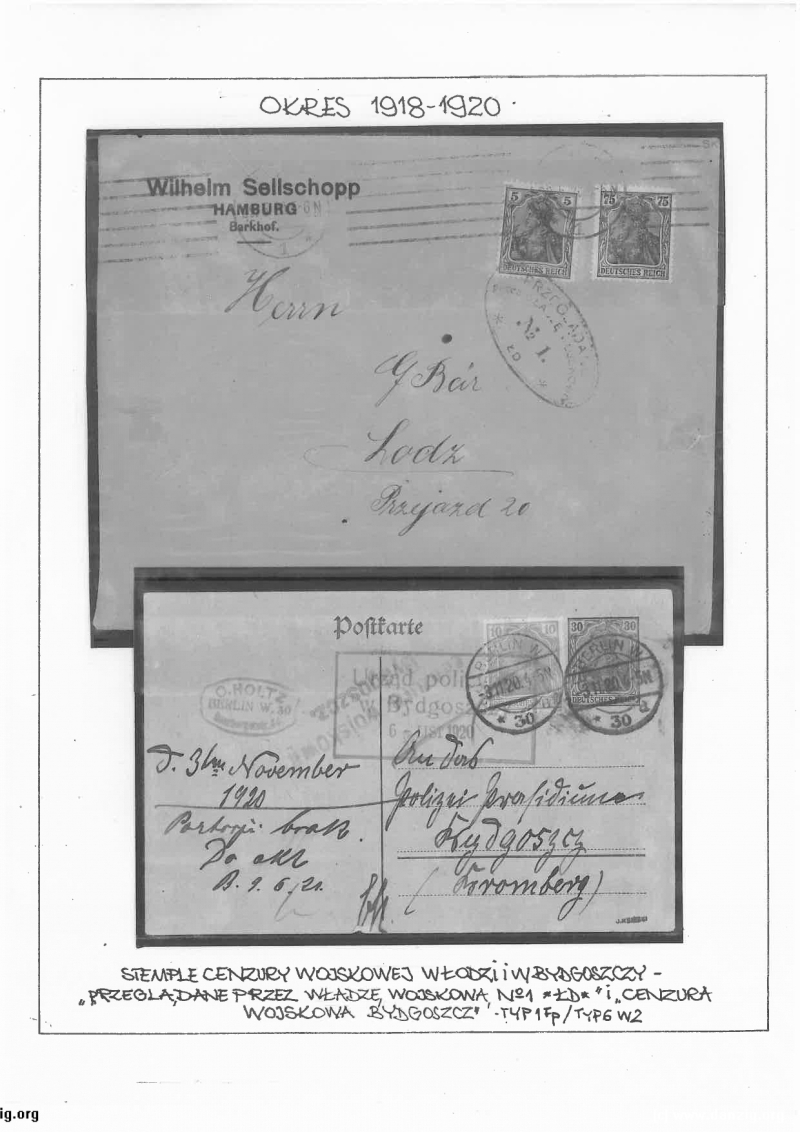 OKRES 1918-1920.
Wilhelm Sellschopp
HAMBURG
Barkhof.
5 5
DEUTSCHES REICH
75 75
DEUTSCHES REICH
№ 1.
* ŁD *
Herrn
G Bär
Lodz
Przejazd 20
Postkarte
10 10
30 30
DEUTSCHES REICH
BERLIN W
-3.11.20.4-5N
* 30 a
BERLIN W
* 30 a
O. HOLTZ
BERLIN W. 30
Urząd polic
w Bydgosz
6 1920
d. 3ten November
1920
brak.
Do akt
B. 9. 6/21.
An das
Polizei Praesidium
Bydgoszcz
(Bromberg)
STEMPLE CENZURY WOJSKOWEJ W ŁODZI I W BYDGOSZCZY –
„PRZEGLĄDANE PRZEZ WŁADZE WOJSKOWĄ №1 *ŁD*" i „CENZURA
WOJSKOWA BYDGOSZCZ" - TYP 1Fp / TYP 6 W2
ig.org